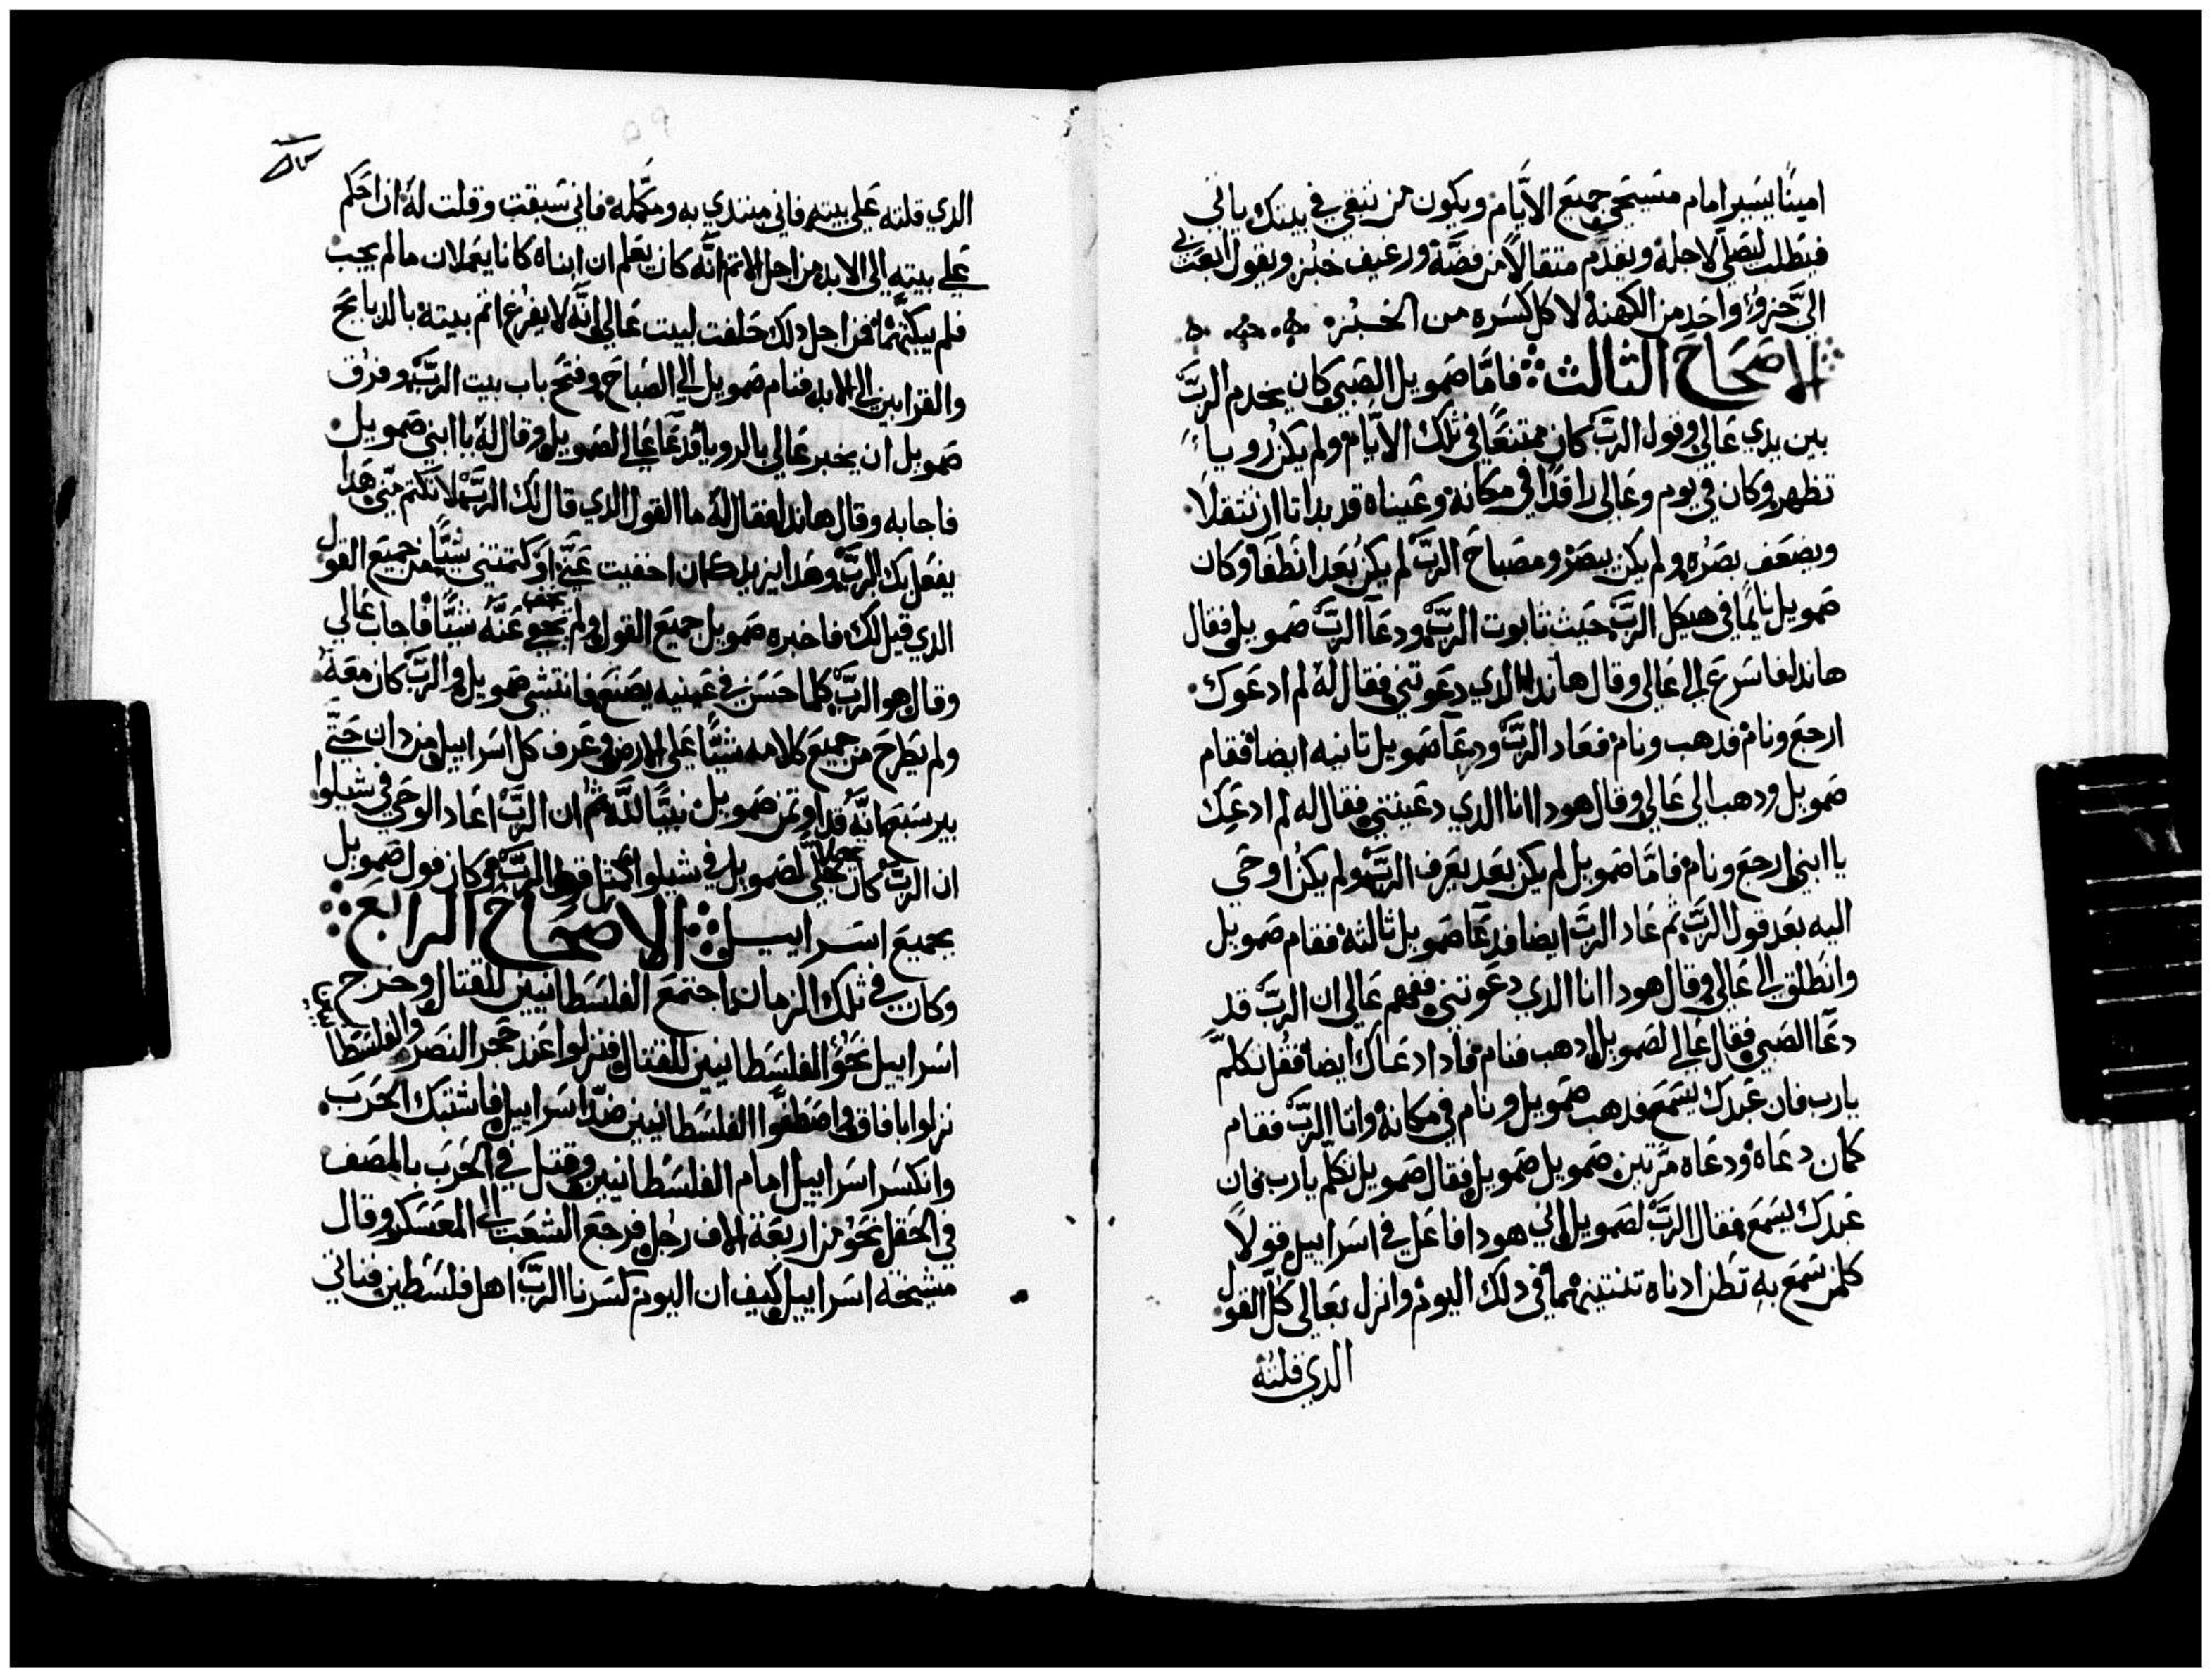 امينًا يسير امام مسيحي جميع الايّام ويكون من يتبقي في بيتك ياتي
فيطلب ليصلّي لاجله ويقدّم مثقالاً من فضّة ورغيف خبز ويقول ابعثني
اليّ حزو واحد من الكهنة لاكل كسره من الخبز
الاصحاح الثالث فامّا صمويل الصبي كان يخدم الربّ
بين يدي عالي وقول الربّ كان ممتنعًا في تلك الايّام ولم يكن رويا
تظهر وكان في يوم وعالي راقدًا في مكانه وعيناه قد بداتا ان تثقلا
ويضعف بصره ولم يكن يبصر ومصباح الربّ لم يكن بعد انطفا وكان
صمويل نايمًا في هيكل الربّ حيث تابوت الربّ ودعا الربّ صمويل فقال
هاندا فاسرع الي عالي وقال هاندا الدي دعوتني فقال له لم ادعوك
ارجع ونام فدهب ونام فعاد الربّ ودعا صمويل تانيه ايضا فقام
صمويل ودهب الي عالي وقال هودا انا الدي دعيتني فقال له لم ادعك
يا ابني ارجع ونام فامّا صمويل لم يكن بعد يعرف الربّ ولم يكن اوحي
اليه بعد قول الربّ ثم عاد الربّ ايضا فدعا صمويل ثالثه فقام صمويل
وانطلق الي عالي وقال هودا انا الدي دعوتني ففهم عالي ان الربّ قد
دعا الصبي فقال عالي لصمويل ادهب فنام فادا دعاك ايضا فقل تكلّم
يارب فان عبدك يسمع فدهب صمويل ونام في مكانه واتا الربّ فقام
كمان دعاه ودعاه مرّتين صمويل صمويل فقال صمويل تكلّم يارب فان
عبدك يسمع فقال الربّ لصمويل اني هودا فاعل في اسراييل قولاً
كلمن سمع به تطن ادناه تنتينهما في دلك اليوم وانزل بعالي كلّ القول
الدي قلته
الدي قلته علي بيته فاني مبتدي به ومكمّله فاني سبقت وقلت له ان احكم
علي بيته الي الابد من اجل الاتم انّه كان يعلم ان ابناه كانا يعملان ما لم يجب
فلم يبكتهما فمن اجل دلك حلفت لبيت عالي انّه لا يفرغ اثم بيته بالدبايح
والقرابين الي الابد فنام صمويل الي الصباح وفتح باب بيت الربّ وفرق
صمويل ان يخبر عالي بالرويا فدعا عالي لصمويل وقال له يا ابني صمويل
فاجابه وقال هاندا فقال له ما القول الدي قال لك الربّ لا تكتم منّي هدا
يفعل بك الربّ وهدا يزيدك ان اخفيت عنّي او كتمتني شيًّا من جميع القول
الدي قيل لك فاخبره صمويل جميع القول ولم يخفي عنّه شيًّا فاجاب عالي
وقال هو الربّ كلما حسن في عينيه يصنع فانتشي صمويل والربّ كان معه
ولم يطرح من جميع كلامه شيًّا علي الارض وعرف كل اسراييل من دان حتّي
بيرسبع انّه قد اوتمن صمويل نبيًّا للّه ثم ان الربّ اعاد الوحي في شيلوا
ان الربّ كان تجلّي لصمويل في شيلوا كمثل قول الربّ وكان قول صمويل
بجميع اسراييل الاصحاح الرابع
وكان في تلك الزمان اجتمع الفلسطانيين للقتال وخرج
اسراييل نحو الفلسطانيين للقتال فنزلوا عند حجر النصر والفلسطا
نزلوا بافاق واصطفوا الفلسطانيين ضدّ اسراييل فاشتبك الحرب
وانكسر اسراييل امام الفلسطانيين وقتل في الحرب بالمصف
في الحقل نحو من اربعة الاف رجل فرجع الشعب الي المعسكر وقال
مشيخة اسراييل كيف ان اليوم كسرنا الربّ اهل فلسطين فناتي